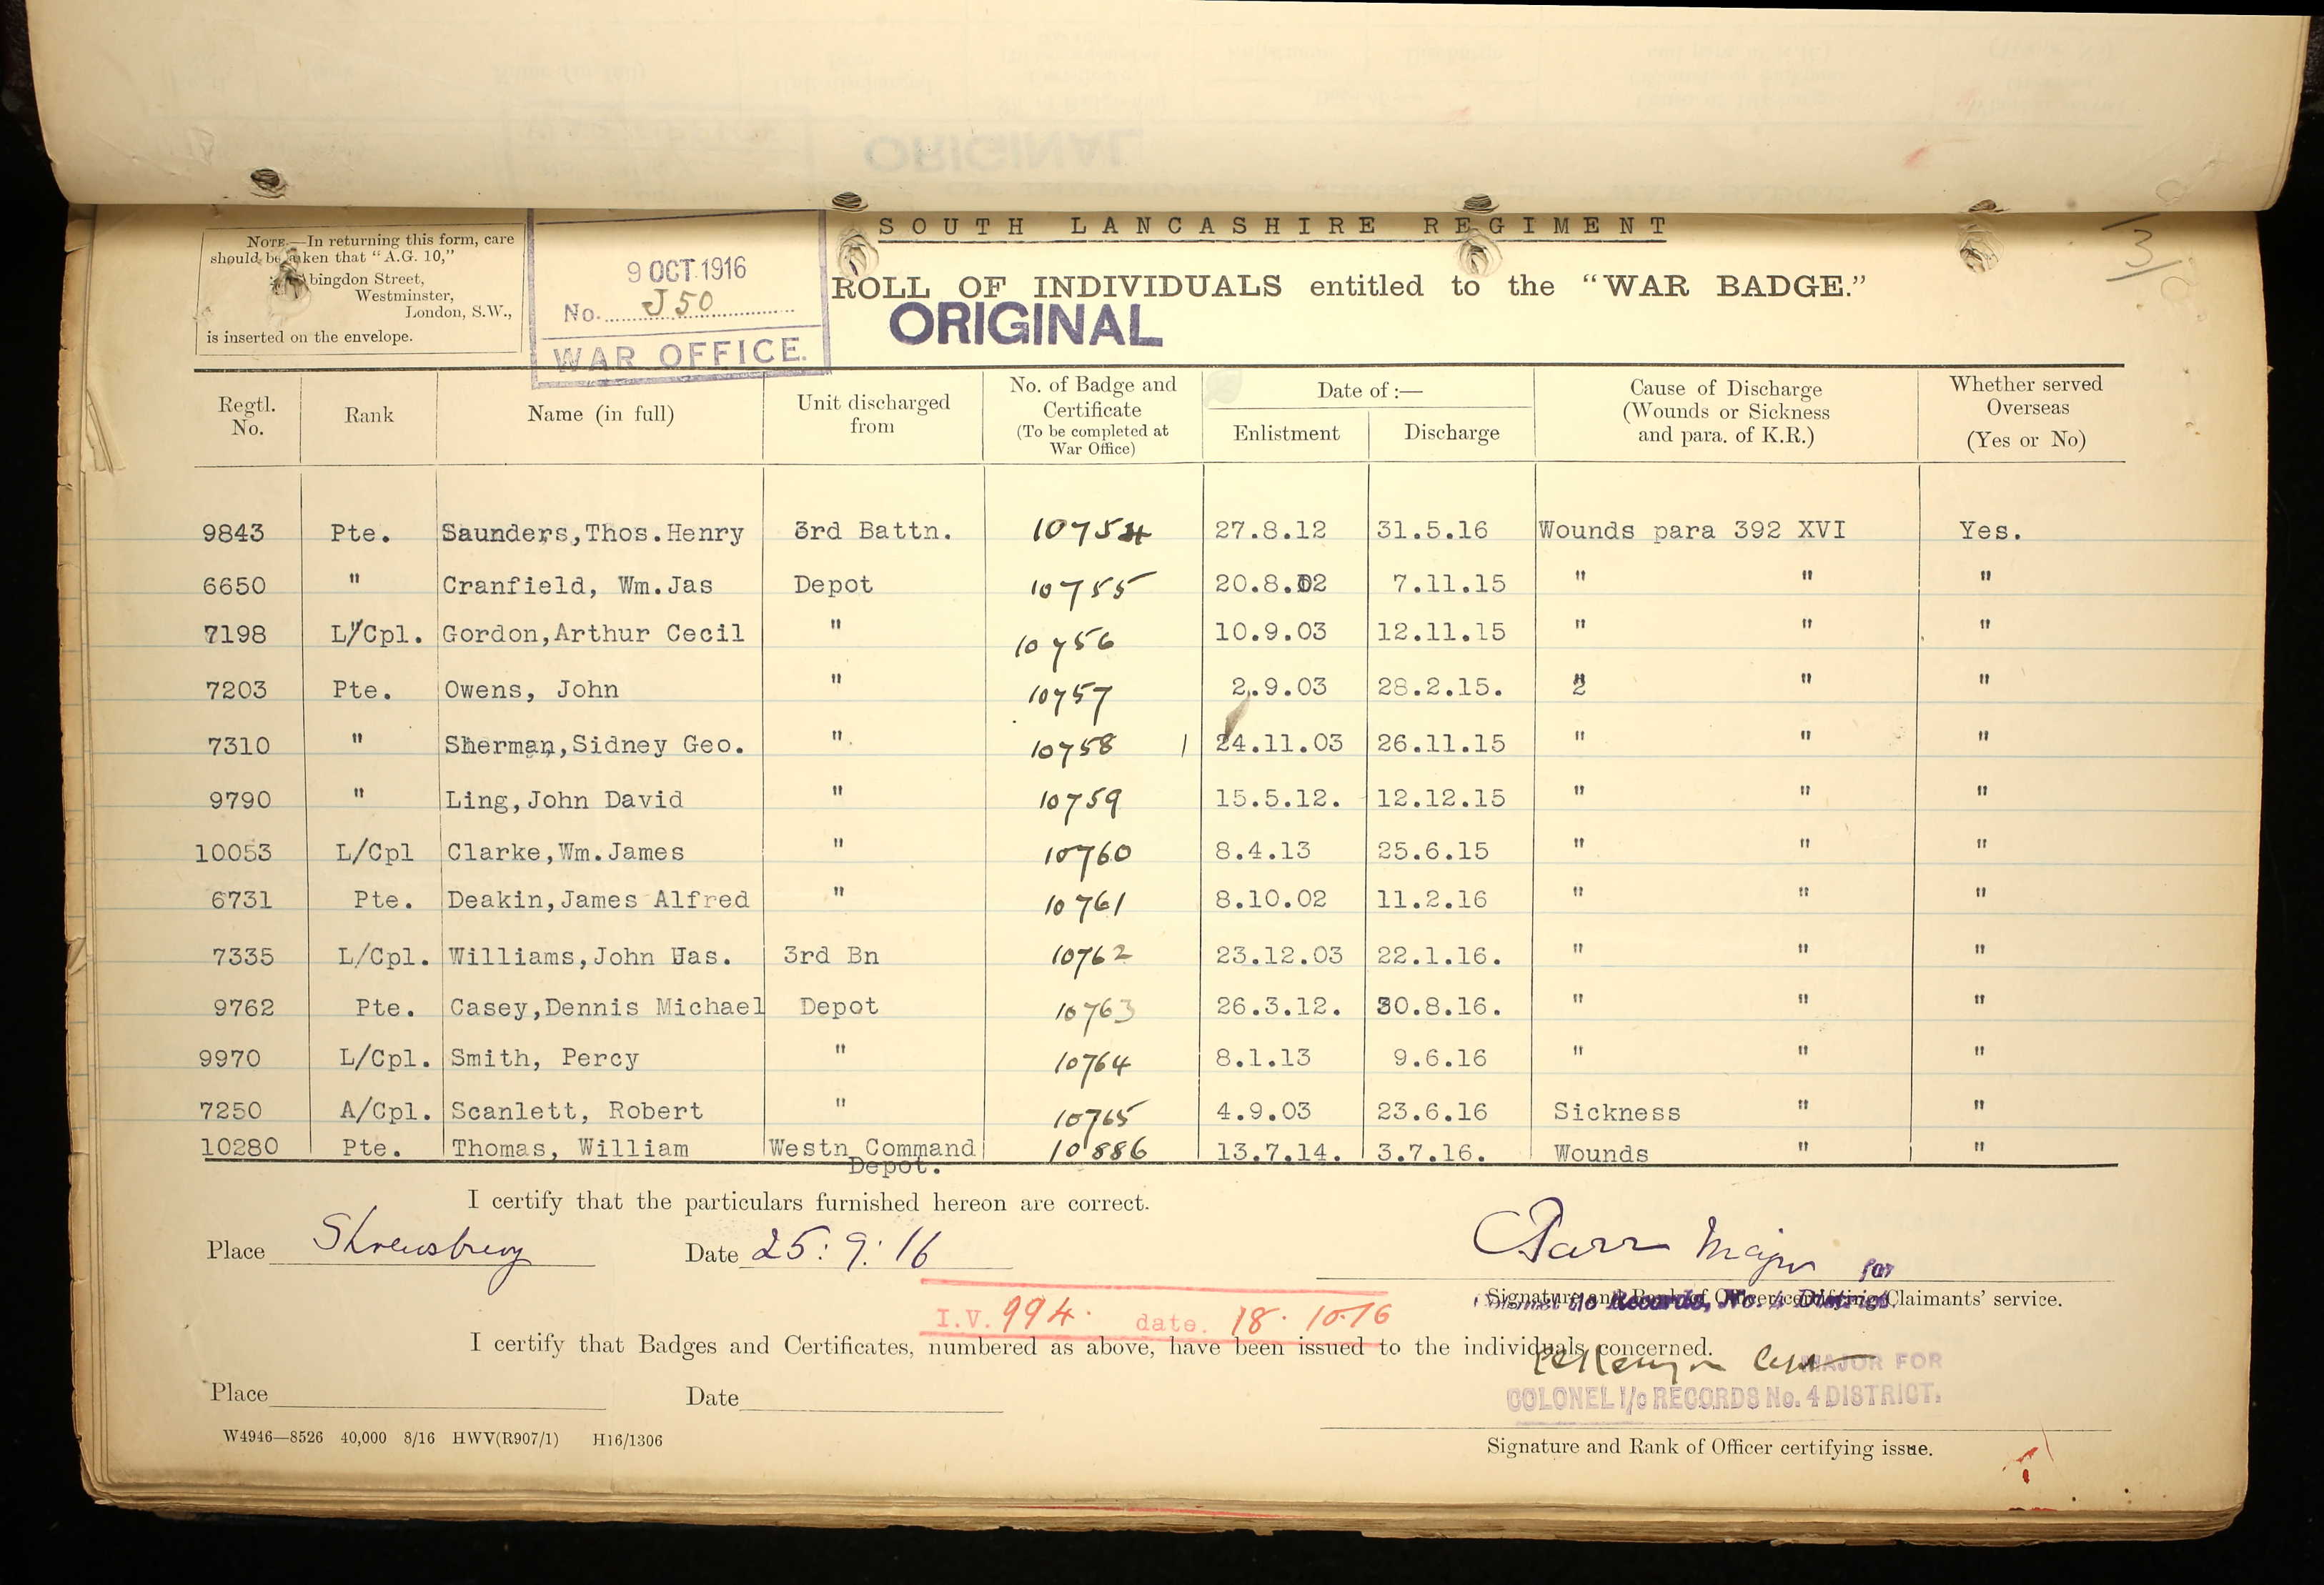 SOUTH LANCASHIRE REGIMENT
NOTE.—In returning this form, care
should be taken that "A.G. 10,"
Abingdon Street,
Westminster,
London, S.W.,
is inserted on the envelope.
9 OCT. 1916
No. J50
WAR OFFICE.
ROLL OF INDIVIDUALS entitled to the "WAR BADGE."
ORIGINAL
Regtl. No. Rank Name (in full) Unit discharged from No. of Badge and Certificate (To be completed at War Office) Date of :— Enlistment Discharge Cause of Discharge (Wounds or Sickness and para. of K.R.) Whether served Overseas (Yes or No)
9843 Pte. Saunders,Thos.Henry 3rd Battn. 10754 27.8.12 31.5.16 Wounds para 392 XVI Yes.
6650 " Cranfield, Wm.Jas Depot 10755 20.8.02 7.11.15 " " "
7198 L/Cpl. Gordon,Arthur Cecil " 10756 10.9.03 12.11.15 " " "
7203 Pte. Owens, John " 10757 2.9.03 28.2.15. " " "
7310 " Sherman,Sidney Geo. " 10758 24.11.03 26.11.15 " " "
9790 " Ling,John David " 10759 15.5.12. 12.12.15 " " "
10053 L/Cpl Clarke,Wm.James " 10760 8.4.13 25.6.15 " " "
6731 Pte. Deakin,James Alfred " 10761 8.10.02 11.2.16 " " "
7335 L/Cpl. Williams,John Has. 3rd Bn 10762 23.12.03 22.1.16. " " "
9762 Pte. Casey,Dennis Michael Depot 10763 26.3.12. 30.8.16. " " "
9970 L/Cpl. Smith, Percy " 10764 8.1.13 9.6.16 " " "
7250 A/Cpl. Scanlett, Robert " 10765 4.9.03 23.6.16 Sickness " "
10280 Pte. Thomas, William Westn Command Depot. 10886 13.7.14. 3.7.16. Wounds " "
I certify that the particulars furnished hereon are correct.
Place Shrewsbury Date 25:9:16 Major for
Signature and Rank of Officer certifying Claimants' service.
i/c Records, No. 4 District.
I.V. 994. date. 18.10.16
I certify that Badges and Certificates, numbered as above, have been issued to the individuals concerned.
MAJOR FOR
COLONEL I/c RECORDS No. 4 DISTRICT.
Place Date
W4946—8526 40,000 8/16 HWV(R907/1) H16/1306
Signature and Rank of Officer certifying issue.